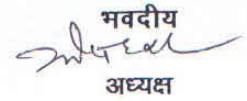 भवदीय
अध्यक्ष